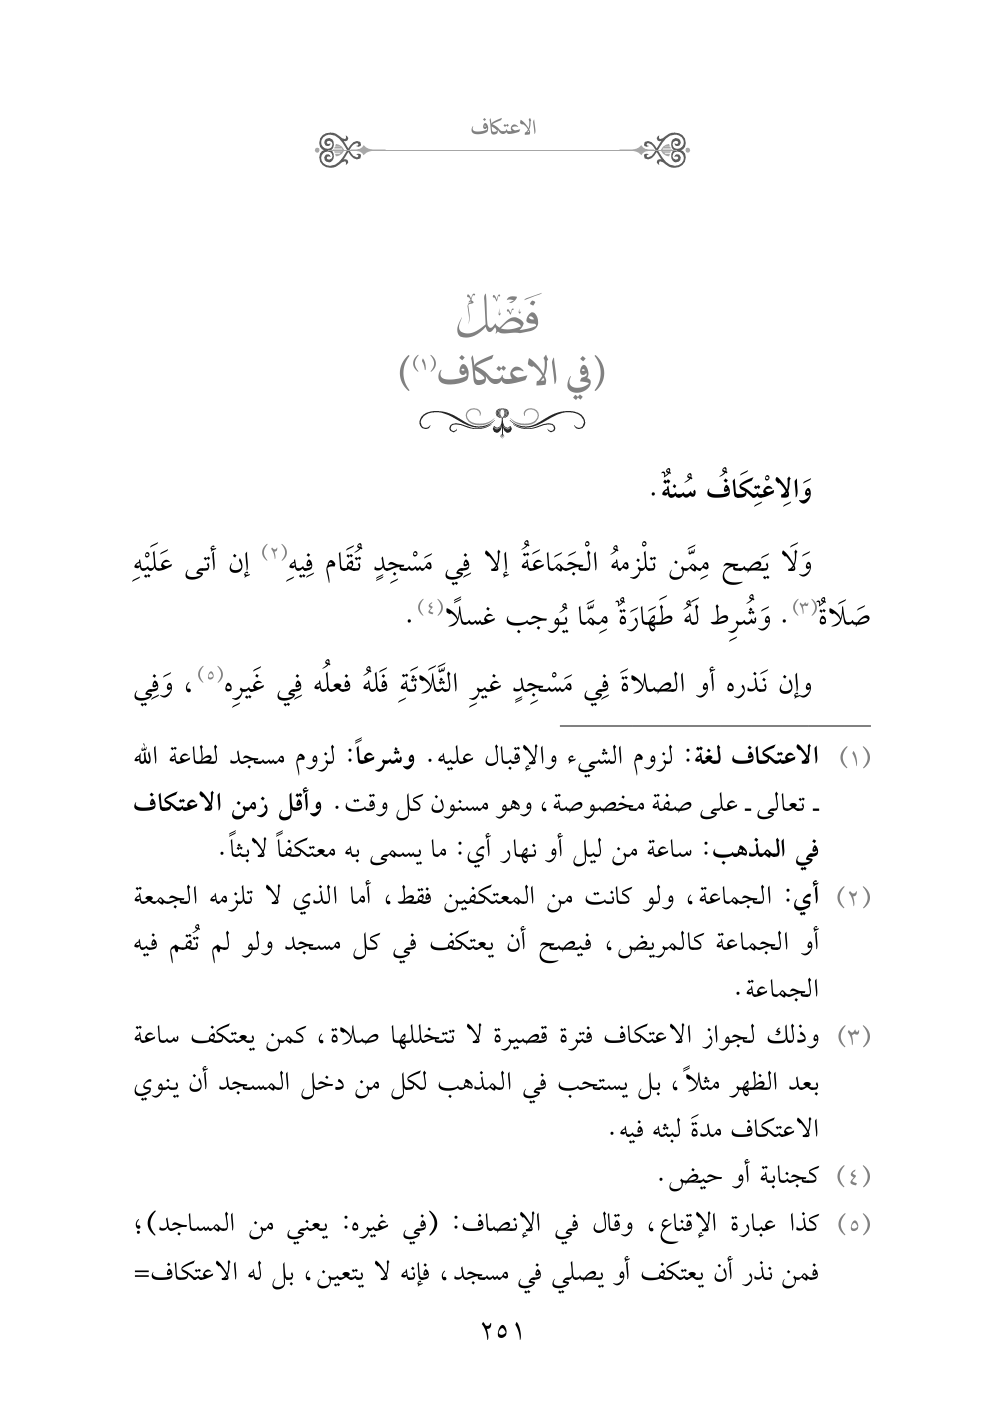 الاعتكاف
فَصْل
(في الاعتكاف(١))
وَالِاعْتِكَافُ سُنةٌ.
وَلَا يَصح مِمَّن تلْزمهُ الْجَمَاعَةُ إلا فِي مَسْجِدٍ تُقَام فِيهِ(٢) إن أتى عَلَيْهِ
صَلَاةٌ(٣). وَشُرِط لَهُ طَهَارَةٌ مِمَّا يُوجب غسلًا(٤).
وإن نَذره أو الصلاةَ فِي مَسْجِدٍ غيرِ الثَّلَاثَةِ فَلهُ فعلُه فِي غَيرِه(٥)، وَفِي
(١) الاعتكاف لغة: لزوم الشيء والإقبال عليه. وشرعاً: لزوم مسجد لطاعة الله
ـ تعالى ـ على صفة مخصوصة، وهو مسنون كل وقت. وأقل زمن الاعتكاف
في المذهب: ساعة من ليل أو نهار أي: ما يسمى به معتكفاً لابثاً.
(٢) أي: الجماعة، ولو كانت من المعتكفين فقط، أما الذي لا تلزمه الجمعة
أو الجماعة كالمريض، فيصح أن يعتكف في كل مسجد ولو لم تُقم فيه
الجماعة.
(٣) وذلك لجواز الاعتكاف فترة قصيرة لا تتخللها صلاة، كمن يعتكف ساعة
بعد الظهر مثلاً، بل يستحب في المذهب لكل من دخل المسجد أن ينوي
الاعتكاف مدةَ لبثه فيه.
(٤) كجنابة أو حيض.
(٥) كذا عبارة الإقناع، وقال في الإنصاف: (في غيره: يعني من المساجد)؛
فمن نذر أن يعتكف أو يصلي في مسجد، فإنه لا يتعين، بل له الاعتكاف=
٢٥١